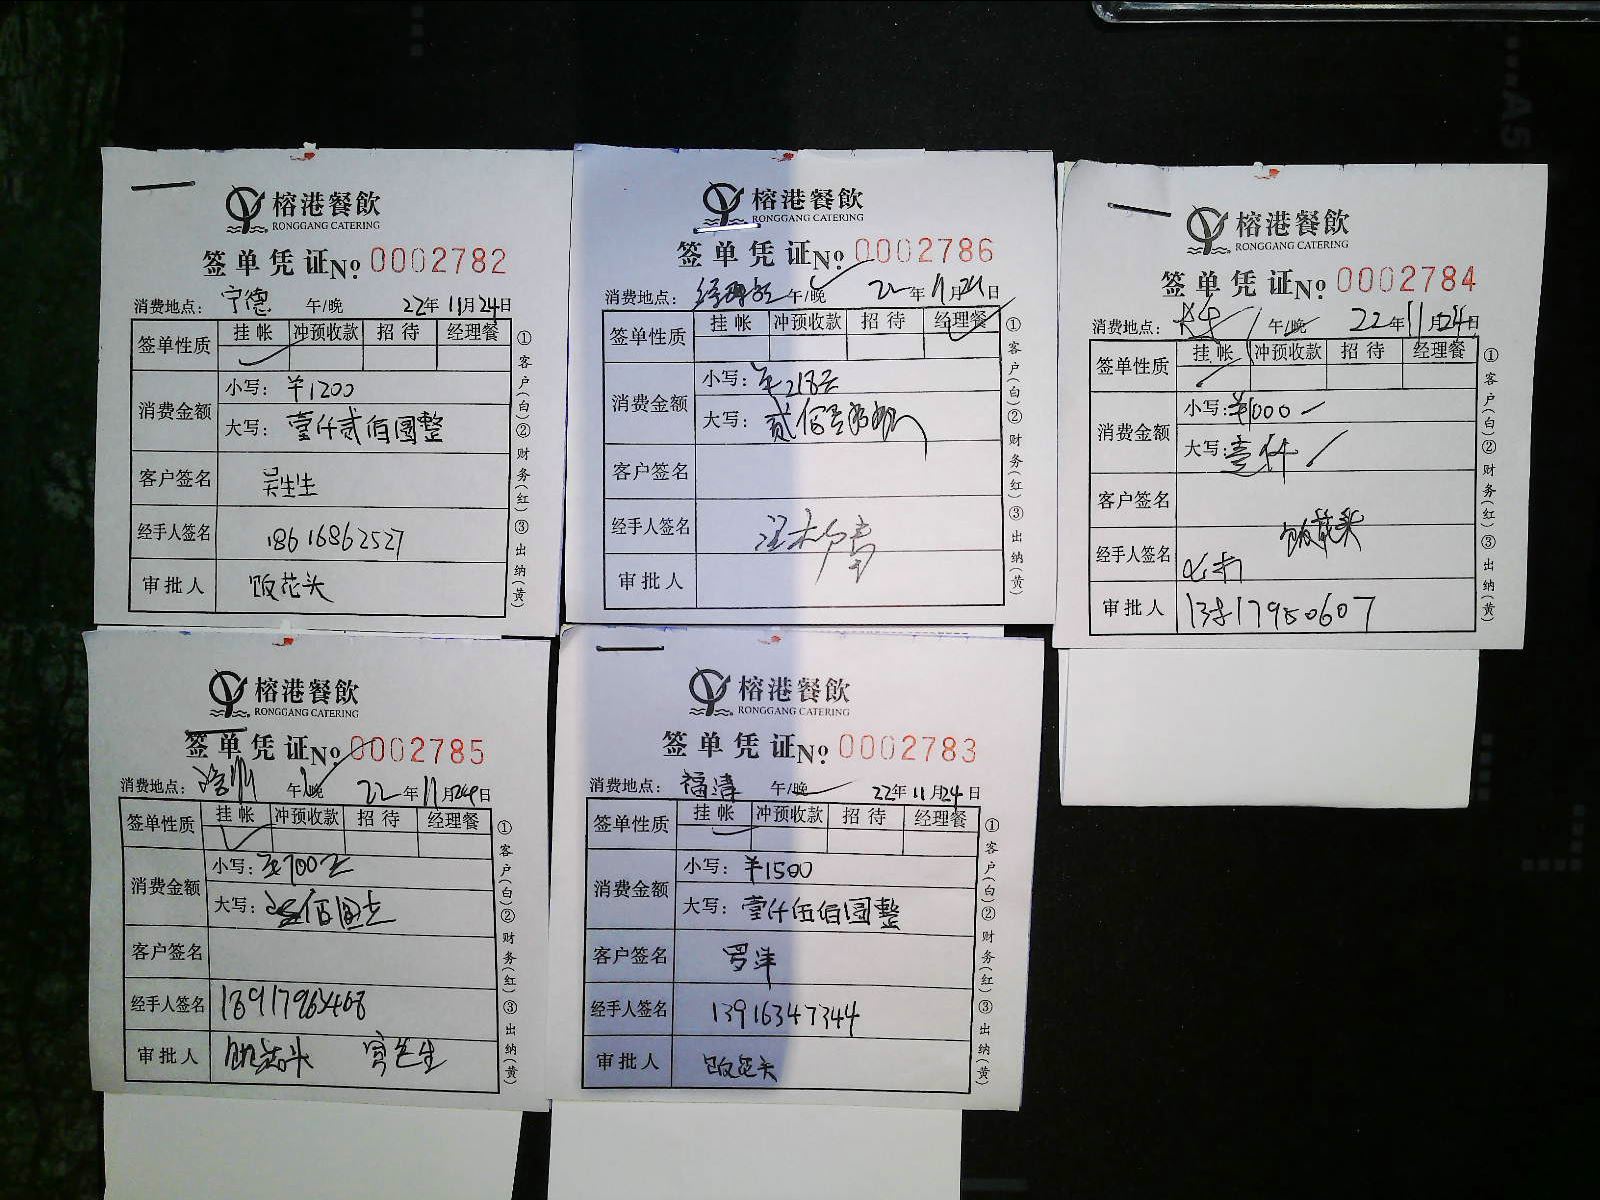 榕港餐飲
RONGGANG CATERING
签单凭证№ 0002782
消费地点: 宁德 午/晚 22年11月24日
签单性质 挂帐 冲预收款 招待 经理餐
消费金额 小写: ¥1200
大写: 壹仟贰佰圆整
客户签名 吴生生
经手人签名 18616862527
审批人 饭花头
①客户(白)②财务(红)③出纳(黄)
榕港餐飲
RONGGANG CATERING
签单凭证№ 0002786
消费地点: 午/晚 22年11月24日
签单性质 挂帐 冲预收款 招待 经理餐
消费金额 小写: ¥218元
大写: 贰佰壹拾捌
客户签名
经手人签名
审批人
①客户(白)②财务(红)③出纳(黄)
榕港餐飲
RONGGANG CATERING
签单凭证№ 0002784
消费地点: 午/晚 22年11月24日
签单性质 挂帐 冲预收款 招待 经理餐
消费金额 小写: ¥1000
大写: 壹仟
客户签名
饭花头
经手人签名
审批人 13817950607
①客户(白)②财务(红)③出纳(黄)
榕港餐飲
RONGGANG CATERING
签单凭证№ 0002785
消费地点: 午/晚 22年11月24日
签单性质 挂帐 冲预收款 招待 经理餐
消费金额 小写: 700元
大写: 佰圆
客户签名
经手人签名
审批人 先生
①客户(白)②财务(红)③出纳(黄)
榕港餐飲
RONGGANG CATERING
签单凭证№ 0002783
消费地点: 福清 午/晚 22年11月24日
签单性质 挂帐 冲预收款 招待 经理餐
消费金额 小写: ¥1500
大写: 壹仟伍佰圆整
客户签名 罗洋
经手人签名 13916347344
审批人 饭花头
①客户(白)②财务(红)③出纳(黄)